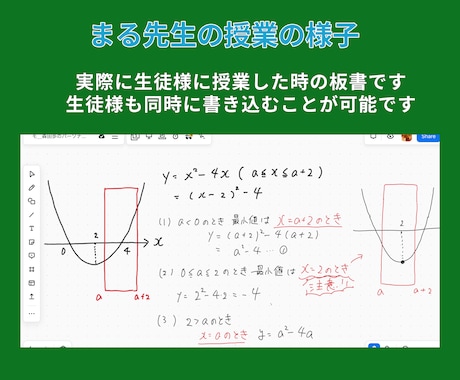 まる先生の授業の様子
実際に生徒様に授業した時の板書です
生徒様も同時に書き込むことが可能です
Share
y = x²-4x ( a≦x≦a+2)
= (x-2)²-4
(1) a<0のとき 最小値は x=a+2のとき
y = (a+2)²-4(a+2)
= a²-4 … ①
(2) 0≦a≦2のとき 最小値は x=2のとき
注意!!
y = 2²-4・2 = -4
(3) 2>aのとき
x=aのとき y = a²-4a
2
0 4 x
a a+2
2
a a+2